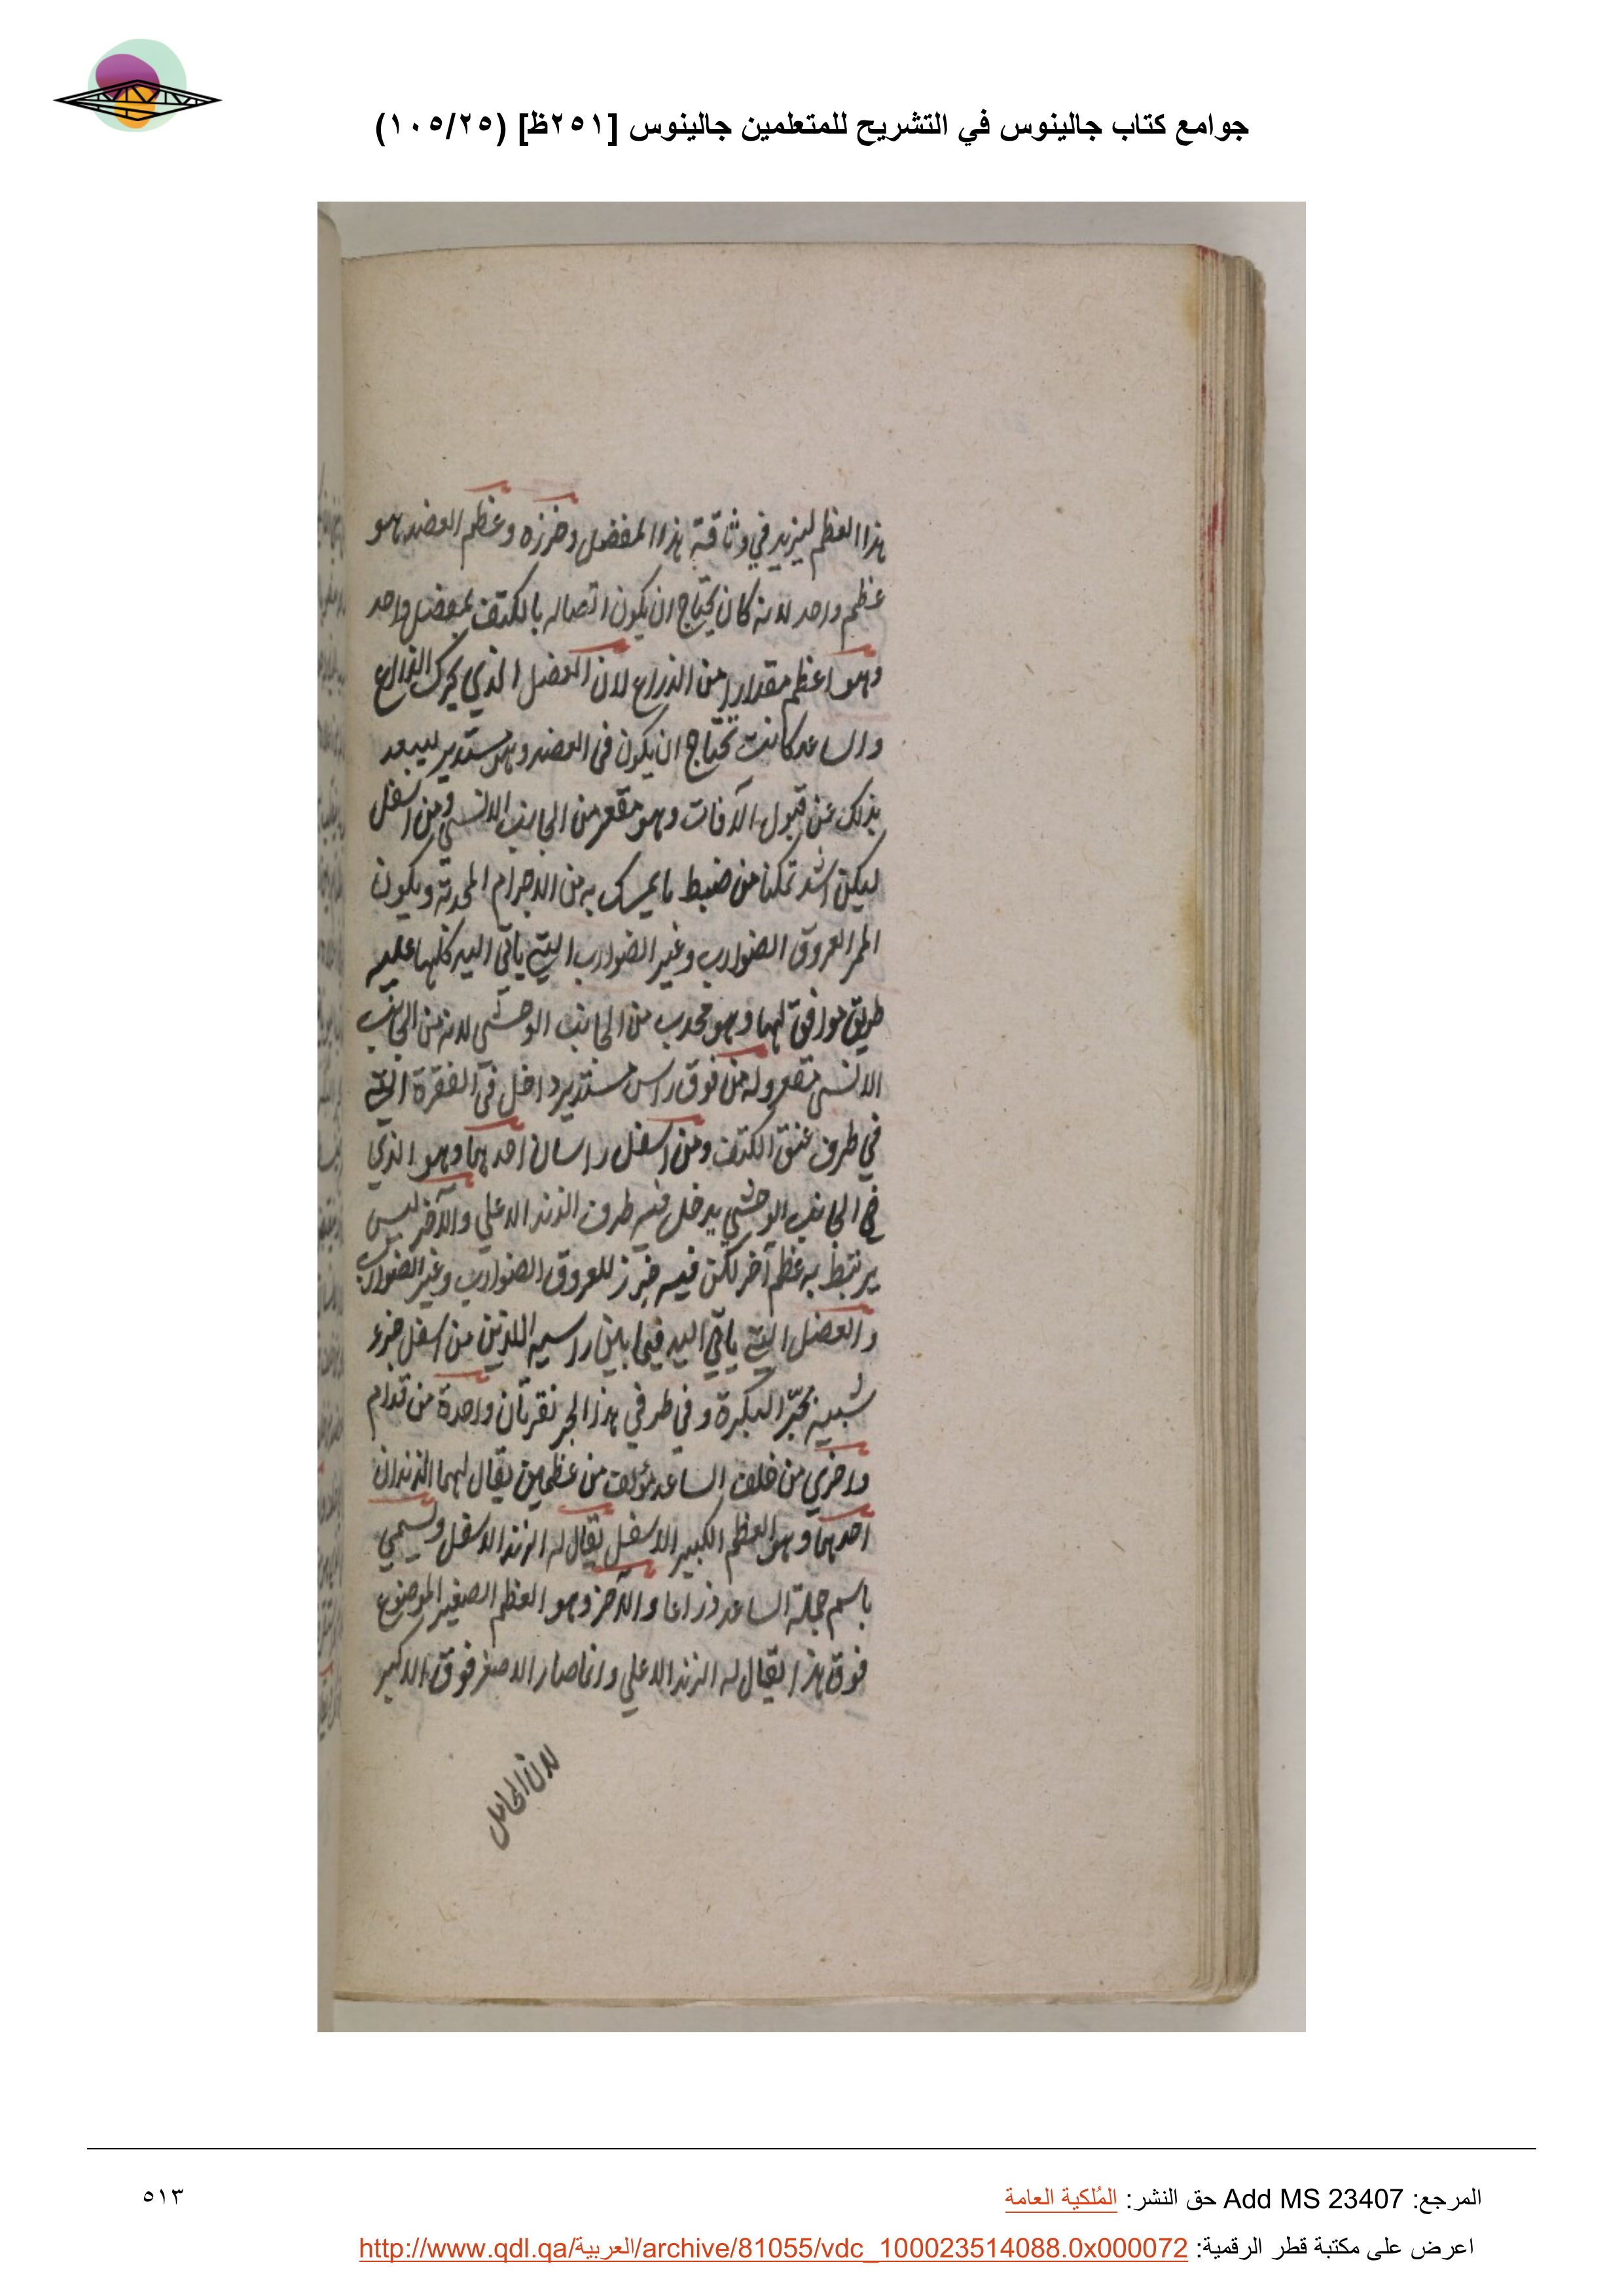 جوامع كتاب جالينوس في التشريح للمتعلمين جالينوس [٢٥١ظ] (١٠٥/٢٥)
هذا العظم ليزيد في وثاقة هذا المفصل وخرزه وعظم العضد هو
عظم واحد لانه كان يحتاج ان يكون اتصاله بالكتف بمفصل واحد
وهو اعظم مقدارا من الذراع لان العضل الذي يحرك الذراع
والساعد كانت تحتاج ان يكون في العضد وهو مستدير ليبعد
بذلك عن قبول الآفات وهو مقعر من الجانب الانسي ومن اسفل
ليكن اشد تمكنا من ضبط ما يمسك به من الاجرام المحدبة ويكون
الممر العروق الضوارب وغير الضوارب التي ياتي اليد كلها عليه
طريق موافق لهما وهو محدب من الجانب الوحشي لانه من الجانب
الانسي مقعر وله من فوق راس مستدير داخل في الفقرة التي
في طرف عنق الكتف ومن اسفل راسان احدهما وهو الذي
في الجانب الوحشي يدخل فيه طرف الزند الاعلي والآخر ليس
يرتبط به عظم آخر لكن فيه حرز للعروق الضوارب وغير الضوارب
والعضل التي ياتي اليد فيما بين راسيه اللذين من اسفل جزء
شبيه بحز البكرة وفي طرفي هذا الحز نقرتان واحدة من قدام
واخري من خلف الساعد مؤلف من عظمين يقال لهما الزندان
احدهما وهو العظم الكبير الاسفل يقال له الزند الاسفل ويسمي
باسم جملة الساعد ذراعا والآخر وهو العظم الصغير الموضوع
فوق هذا يقال له الزند الاعلي وانما صار الاصغر فوق الاكبر
لان الحامل
المرجع: Add MS 23407 حق النشر: المُلكية العامة
٥١٣
اعرض على مكتبة قطر الرقمية: http://www.qdl.qa/العربية/archive/81055/vdc_100023514088.0x000072